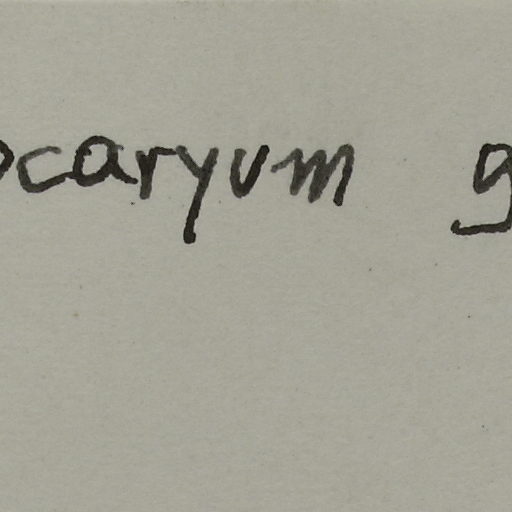 ocaryum g